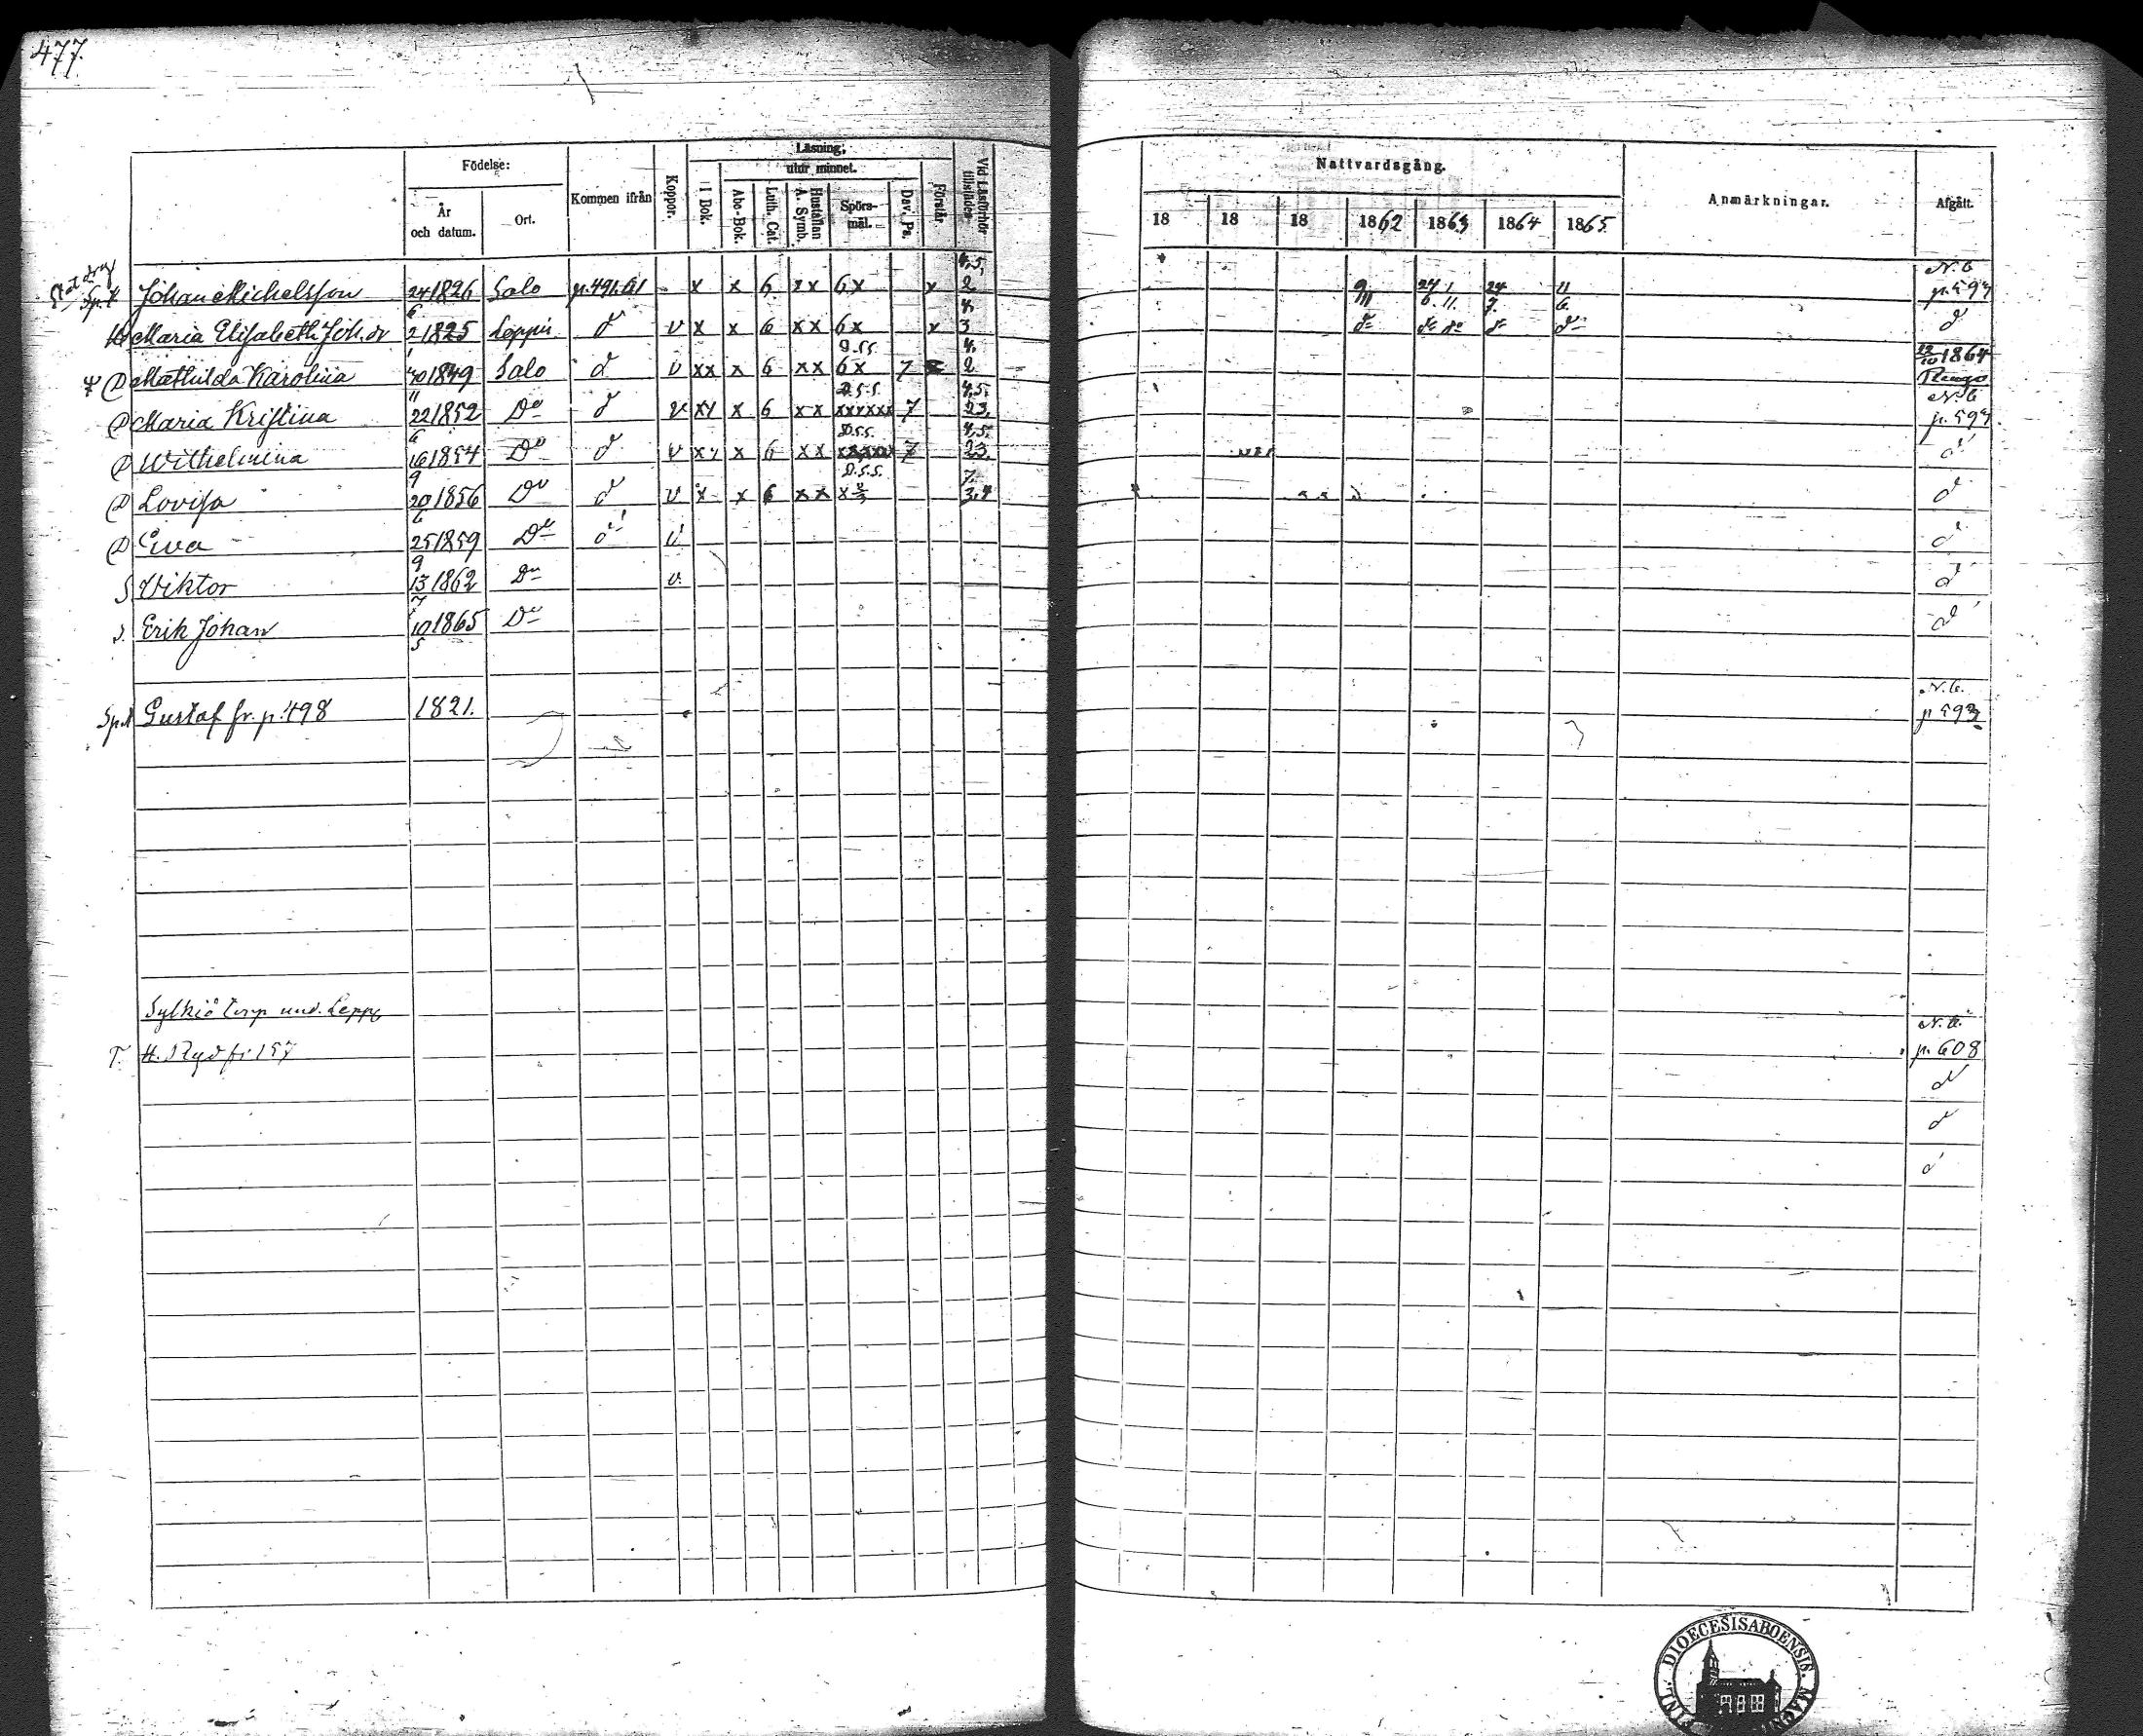 477.
Födelse: Kommen ifrån Koppor. Läsning, Vid Läsförhör tillstädes Nattvardsgång. Anmärkningar. Afgått.
utur minnet.
År och datum. Ort. I Bok. Abc-Bok. Luth. Cat. Hustaflan A. Symb. Spörs-mål. Dav. Ps. Förstår. 18 18 18 1862 1863 1864 1865.
4.5. N. b
Johan Michelsson 24 1826 Salo p. 491. x x 6 x x 6 x x 2 9 24 1 24 11 p. 593
6 4. 11 6. 11. 7. 6.
Maria Elisabeth Joh. dr 2 1825 Leppis d v x x 6 x x 6 x x 3 do do do do do d
1 D.ss. 4. 1864
D Mathilda Karolina 1849 Salo d v xx x 6 x x 6 x 7 2 Rengo
11 D.s.s. 4.5. N. b
D Maria Kristina 22 1852 Do d v x x 6 x x xxxxxx 7 23. p. 593
6 D.s.s. 4.5.
D Wilhelmina 16 1854 Do d v x x 6 x x 7 23. d
9 D.s.s. 7.
D Lovisa 20 1856 Do d v x x 6 x x x 3.4 d
6
D Eva 25 1859 Do d v d
9
S Viktor 13 1862 Do v. d
7
S. Erik Johan 10 1865 Do d
5
N. b.
Gustaf fr. p. 498 1821. p 593
Sylkiö torp und. Leppe
N. b.
T. H. p. 608
d
d
d
DIOECESIS ABOENSIS